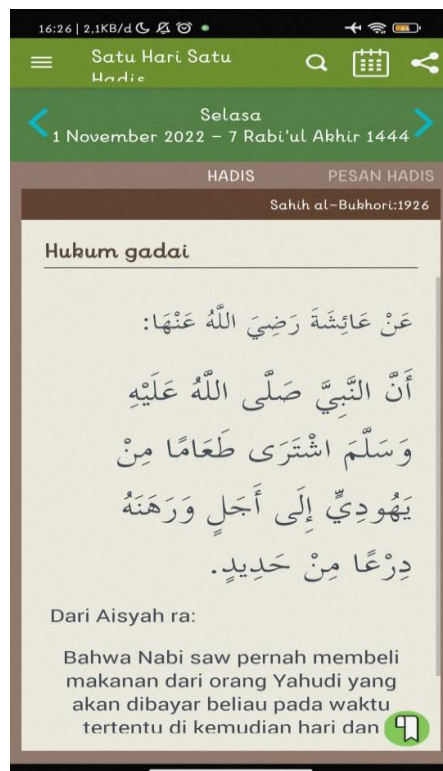 16:26 | 2,1KB/d
Satu Hari Satu
Hadis
Selasa
1 November 2022 – 7 Rabi'ul Akhir 1444
HADIS PESAN HADIS
Sahih al-Bukhori:1926
Hukum gadai
عَنْ عَائِشَةَ رَضِيَ اللَّهُ عَنْهَا:
أَنَّ النَّبِيَّ صَلَّى اللَّهُ عَلَيْهِ
وَسَلَّمَ اشْتَرَى طَعَامًا مِنْ
يَهُودِيٍّ إِلَى أَجَلٍ وَرَهَنَهُ
دِرْعًا مِنْ حَدِيدٍ.
Dari Aisyah ra:
Bahwa Nabi saw pernah membeli
makanan dari orang Yahudi yang
akan dibayar beliau pada waktu
tertentu di kemudian hari dan